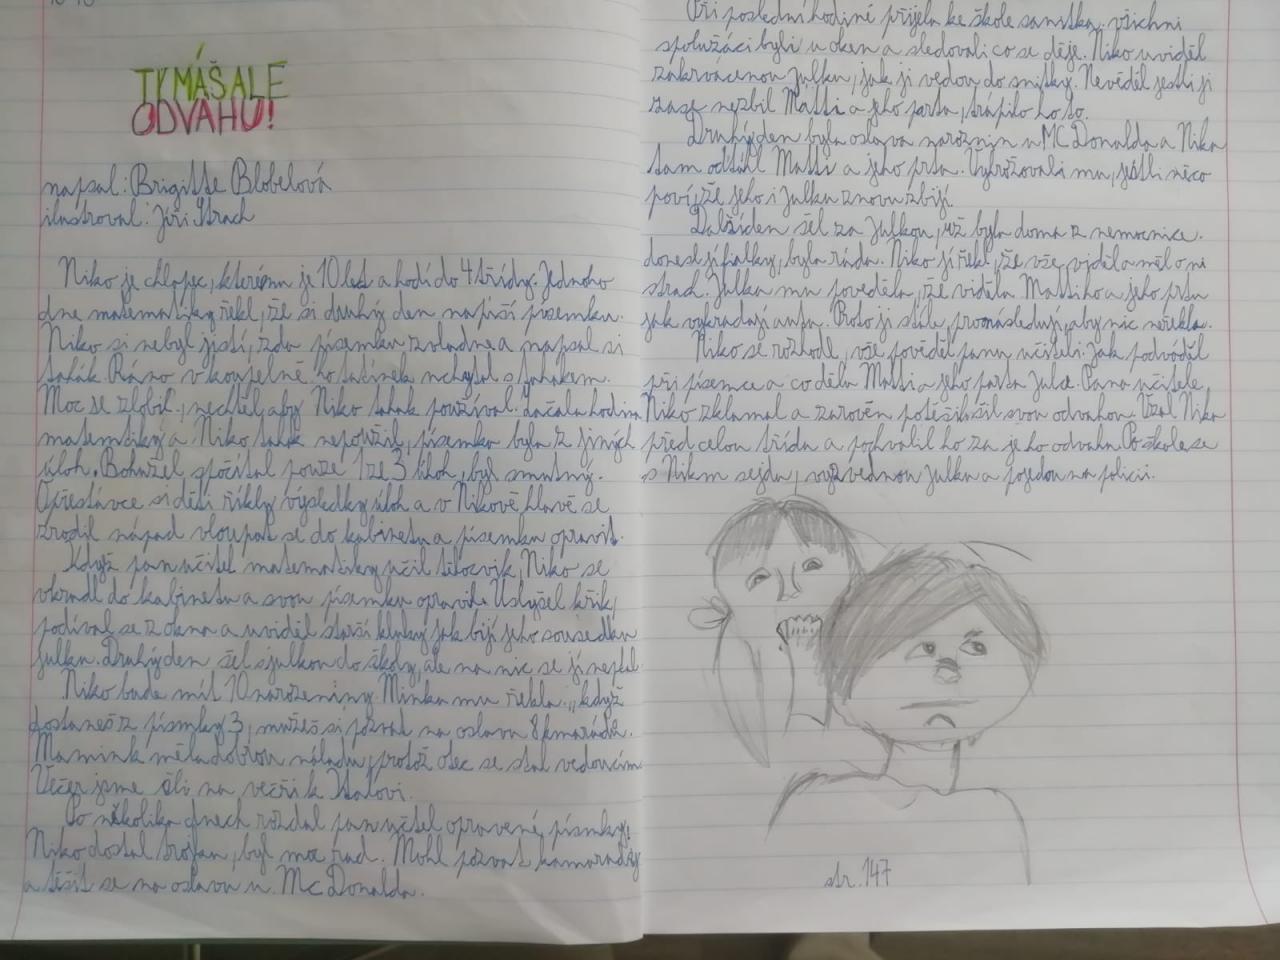 TY MÁŠ ALE
ODVAHU!
napsal: Brigitte Blobelová
ilustroval: Jiří Strach
Niko je chlapec, kterému je 10 let a hodí do 4 třídy. Jednoho
dne matematiky řekl, že si druhý den napíší písemku.
Niko si nebyl jistí, zda písemku zvládne a napsal si
tahák. Ráno v koupelně ho tatínek nchytal s tahákem.
Moc se zlobil, nechtěl, aby Niko tahák používal. Začala hodina
matematiky a Niko tahák nepoužil, písemka byla z jiných
úloh. Bohužel spočítal pouze 1 ze 3 úloh, byl smutný.
O přestávce si děti řikly výsledky úloh a v Nikově hlavě se
zrodil nápad vloupat se do kabinetu a písemku opravit.
Když pan učitel matematiky učil tělocvik, Niko se
vkradl do kabinetu a svou písemku opravil. Uslyšel křik,
podíval se z okna a uviděl starší kluky jak bijí jeho sousedku
Julku. Druhý den šel s julkou do školy, ale na nic se jí neptal.
Niko bude mít 10 narozeniny. Minka mu řekla: „když
dostaneš z písmky 3, mužeš si pozvat na oslavu 8 kmarádů.
Mamink měla dobrou náladu, protož otec se stal vedoucím.
Večer jsme šli na večři k Italovi.
Po několika dnech rozdal pan učtel opravené písmky.
Niko dostal trojku, byl moc rad. Mohl pozvat kamarády
a těšit se na oslavu u Mc Donalda.
Při poslední hodině přijela ke škole sanitka. všichni
spolužáci byli u oken a sledovali co se děje. Niko uviděl
zakrvácenou Julku, jak ji vedou do snitky. Nevěděl jestli ji
zase nezbil Matti a jeho parta, trápilo ho to.
Druhý den byla oslava naroznin u MC Donalda a Nika
tam odtáhl Matti a jeho prta. Vyhrožovali mu, jestli něco
poví, že jeho i Julku znovu zbijí.
Další den šel za Julkou, už byla doma z nemocnice.
donesl jí fialky, byla ráda. Niko jí řekl, že vše vjděl a měl o ni
strach. Julka mu pověděla, že viděla Mattiho a jeho prtu
jak vykradají auta. Proto ji stále pronásledují, aby nic neřekla.
Niko se rozhodl, vše pověděl panu učiteli. Jak podváděl
při písemce a co děla Matti a jeho parta Julce. Pana učitele,
Niko zklamal a zarověn potěšil svou odvahou. Vzal Nika
před celou třídu a pochválil ho za jeho odvahu. Po škole se
s Nikem sejdu, vyzvednou Julku a pojedou na policii.
str. 147